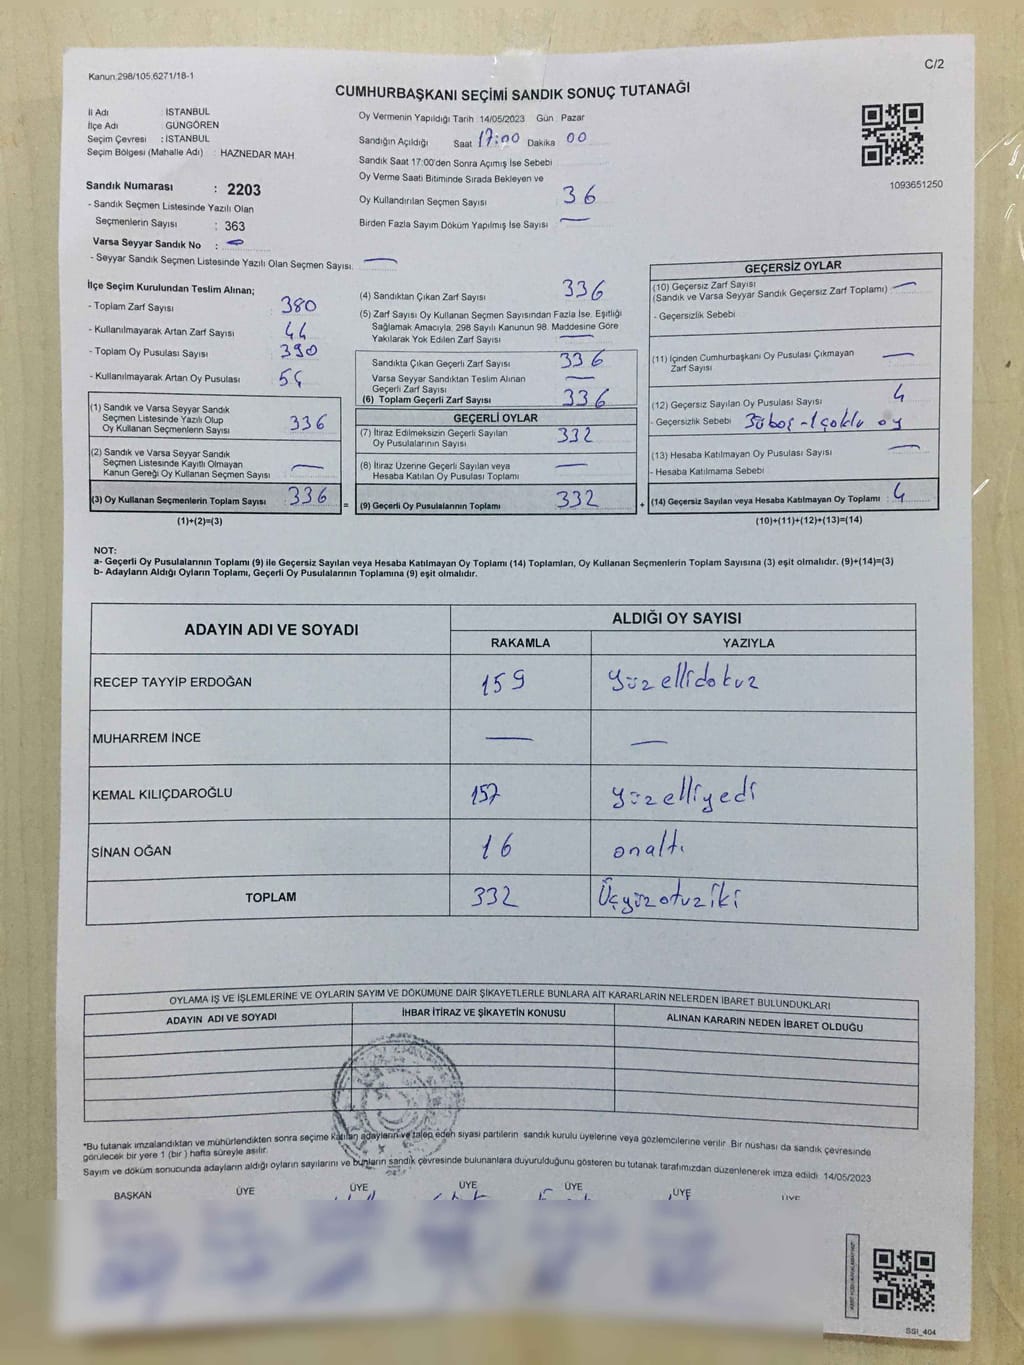 Kanun.298/105,6271/18-1
C/2
CUMHURBAŞKANI SEÇİMİ SANDIK SONUÇ TUTANAĞI
İl Adı : İSTANBUL
İlçe Adı : GÜNGÖREN
Seçim Çevresi : İSTANBUL
Seçim Bölgesi (Mahalle Adı) : HAZNEDAR MAH
Sandık Numarası : 2203
- Sandık Seçmen Listesinde Yazılı Olan
Seçmenlerin Sayısı : 363
Varsa Seyyar Sandık No : —
- Seyyar Sandık Seçmen Listesinde Yazılı Olan Seçmen Sayısı: —
Oy Vermenin Yapıldığı Tarih 14/05/2023 Gün Pazar
Sandığın Açıldığı Saat 17:00 Dakika 00
Sandık Saat 17:00'den Sonra Açımış İse Sebebi
Oy Verme Saati Bitiminde Sırada Bekleyen ve
Oy Kullandırılan Seçmen Sayısı 36
Birden Fazla Sayım Döküm Yapılmış İse Sayısı —
1093651250
İlçe Seçim Kurulundan Teslim Alınan;
- Toplam Zarf Sayısı 380
- Kullanılmayarak Artan Zarf Sayısı 44
- Toplam Oy Pusulası Sayısı 390
- Kullanılmayarak Artan Oy Pusulası 54
(1) Sandık ve Varsa Seyyar Sandık
Seçmen Listesinde Yazılı Olup
Oy Kullanan Seçmenlerin Sayısı 336
(2) Sandık ve Varsa Seyyar Sandık
Seçmen Listesinde Kayıtlı Olmayan
Kanun Gereği Oy Kullanan Seçmen Sayısı —
(3) Oy Kullanan Seçmenlerin Toplam Sayısı 336 =
(1)+(2)=(3)
(4) Sandıktan Çıkan Zarf Sayısı 336
(5) Zarf Sayısı Oy Kullanan Seçmen Sayısından Fazla İse, Eşitliği
Sağlamak Amacıyla, 298 Sayılı Kanunun 98. Maddesine Göre
Yakılarak Yok Edilen Zarf Sayısı —
Sandıkta Çıkan Geçerli Zarf Sayısı 336
Varsa Seyyar Sandıktan Teslim Alınan
Geçerli Zarf Sayısı —
(6) Toplam Geçerli Zarf Sayısı 336
GEÇERLİ OYLAR
(7) İtiraz Edilmeksizin Geçerli Sayılan
Oy Pusulalarının Sayısı 332
(8) İtiraz Üzerine Geçerli Sayılan veya
Hesaba Katılan Oy Pusulası Toplamı —
(9) Geçerli Oy Pusulalarının Toplamı 332 +
GEÇERSİZ OYLAR
(10) Geçersiz Zarf Sayısı
(Sandık ve Varsa Seyyar Sandık Geçersiz Zarf Toplamı) —
- Geçersizlik Sebebi
(11) İçinden Cumhurbaşkanı Oy Pusulası Çıkmayan
Zarf Sayısı —
(12) Geçersiz Sayılan Oy Pusulası Sayısı 4
- Geçersizlik Sebebi 3ü boş - 1 çoklu oy
(13) Hesaba Katılmayan Oy Pusulası Sayısı —
- Hesaba Katılmama Sebebi
(14) Geçersiz Sayılan veya Hesaba Katılmayan Oy Toplamı 4
(10)+(11)+(12)+(13)=(14)
NOT:
a- Geçerli Oy Pusulalarının Toplamı (9) ile Geçersiz Sayılan veya Hesaba Katılmayan Oy Toplamı (14) Toplamları, Oy Kullanan Seçmenlerin Toplam Sayısına (3) eşit olmalıdır. (9)+(14)=(3)
b- Adayların Aldığı Oyların Toplamı, Geçerli Oy Pusulalarının Toplamına (9) eşit olmalıdır.
ADAYIN ADI VE SOYADI
ALDIĞI OY SAYISI
RAKAMLA YAZIYLA
RECEP TAYYİP ERDOĞAN 159 yüzellidokuz
MUHARREM İNCE — —
KEMAL KILIÇDAROĞLU 157 yüzelliyedi
SİNAN OĞAN 16 onaltı
TOPLAM 332 Üçyüzotuziki
OYLAMA İŞ VE İŞLEMLERİNE VE OYLARIN SAYIM VE DÖKÜMÜNE DAİR ŞİKAYETLERLE BUNLARA AİT KARARLARIN NELERDEN İBARET BULUNDUKLARI
ADAYIN ADI VE SOYADI İHBAR İTİRAZ VE ŞİKAYETİN KONUSU ALINAN KARARIN NEDEN İBARET OLDUĞU
*Bu tutanak imzalandıktan ve mühürlendikten sonra seçime katılan adayların ve talep eden siyasi partilerin sandık kurulu üyelerine veya gözlemcilerine verilir. Bir nüshası da sandık çevresinde
görülecek bir yere 1 (bir ) hafta süreyle asılır.
Sayım ve döküm sonucunda adayların aldığı oyların sayılarını ve bunların sandık çevresinde bulunanlara duyurulduğunu gösteren bu tutanak tarafımızdan düzenlenerek imza edildi 14/05/2023
BAŞKAN ÜYE ÜYE ÜYE ÜYE ÜYE ÜYE
SSI_404